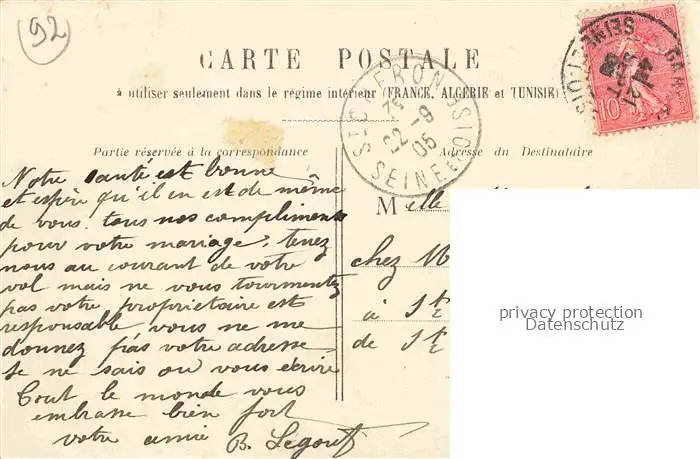 92
CARTE POSTALE
à utiliser seulement dans le régime intérieur (FRANCE, ALGÉRIE et TUNISIE)
Partie réservée à la correspondance
Adresse du Destinataire
Notre santé est bonne
et espère qu'il en est de même
de vous. tous nos compliments
pour votre mariage, tenez
nous au courant de votre
vol mais ne vous tourmentez
pas votre propriétaire est
responsable, vous ne me
donnez pas votre adresse
Je ne sais où vous écrire
Tout le monde vous
embrasse bien fort
votre amie B. Legouf
Melle
chez M
à Ste
de Ste
22 -9
05
SEINE
OISE
10
privacy protection
Datenschutz